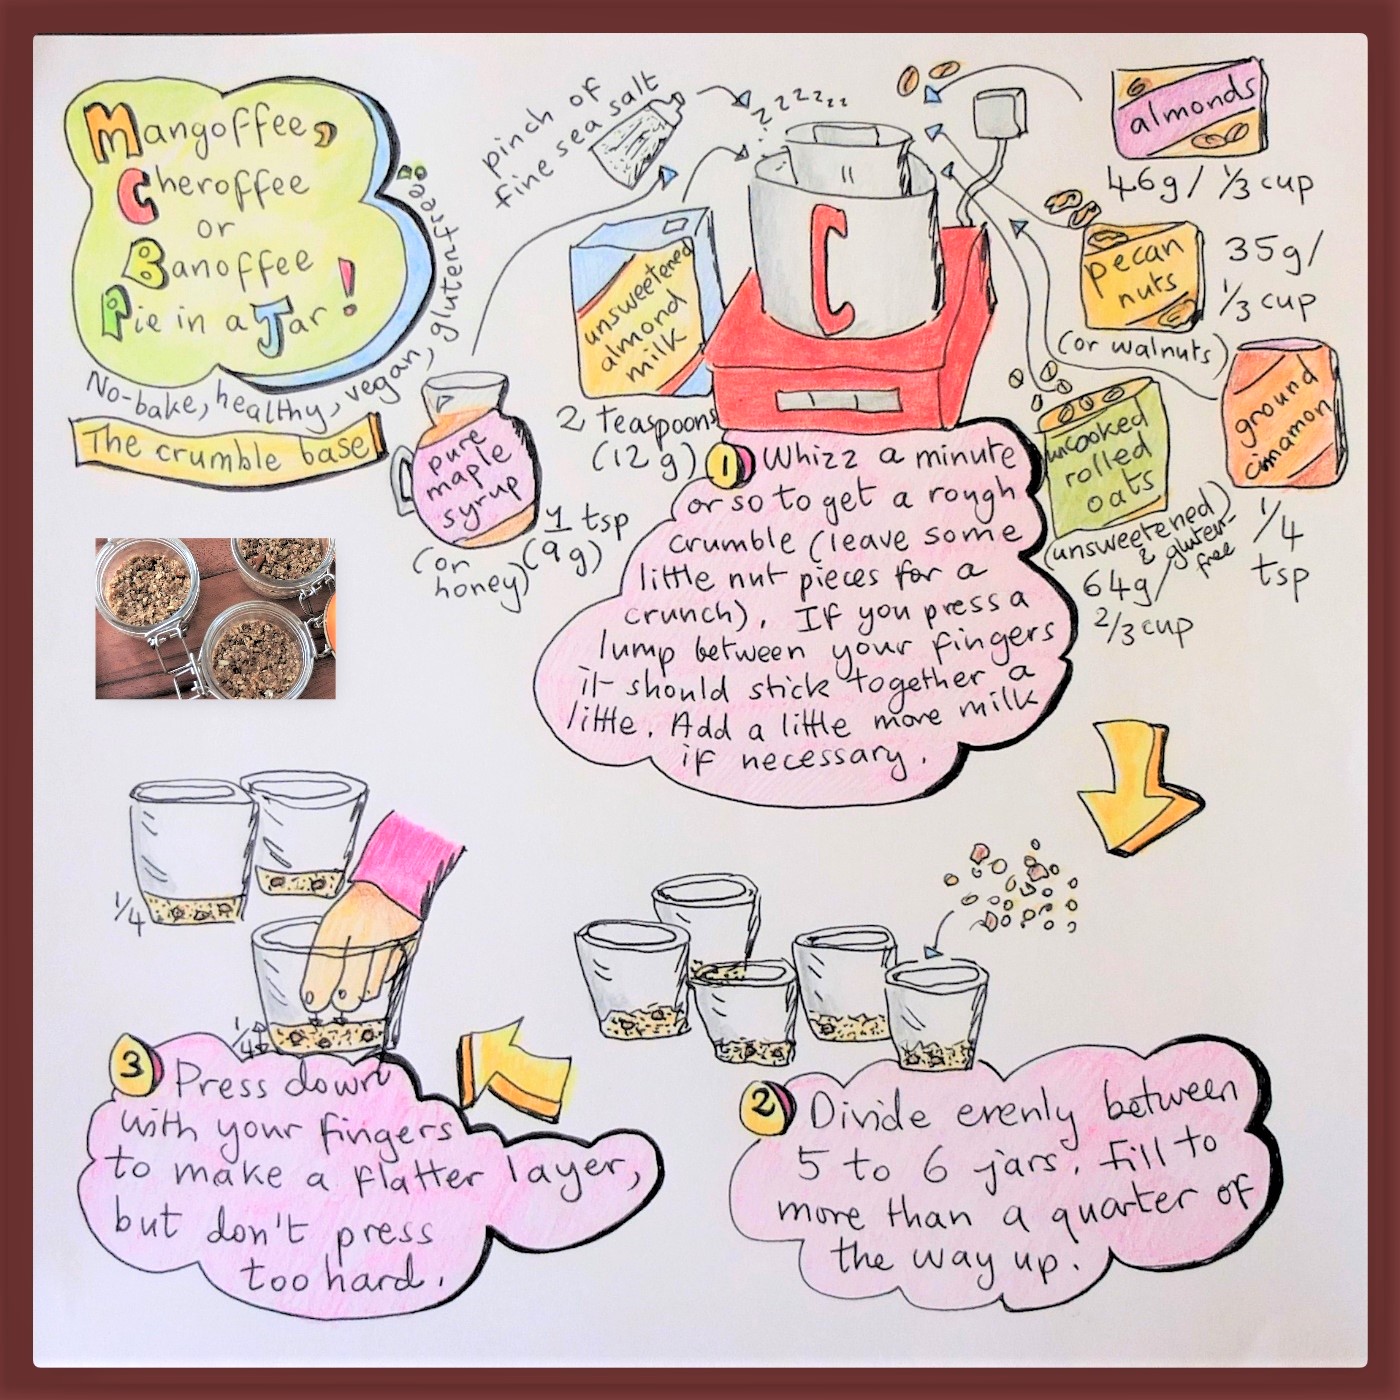 Mangoffee,
Cheroffee
or
Banoffee
Pie in a Jar!
No-bake, healthy, vegan, gluten-free
The crumble base
pinch of
fine sea salt
zzzzzzz
unsweetened
almond
milk
2 Teaspoons
(12g)
pure
maple
syrup
(or
honey)
1 tsp
(9g)
C
almonds
46g/ 1/3 cup
pecan
nuts
35g/
1/3 cup
(or walnuts)
ground
cinnamon
1/4
tsp
uncooked
rolled
oats
(unsweetened)
& gluten-
free
64g/
2/3 cup
1 Whizz a minute
or so to get a rough
crumble (leave some
little nut pieces for a
crunch). If you press a
lump between your fingers
it should stick together a
little. Add a little more milk
if necessary.
2 Divide evenly between
5 to 6 jars. Fill to
more than a quarter of
the way up.
1/4
1/4
3 Press down
with your fingers
to make a flatter layer,
but don't press
too hard.